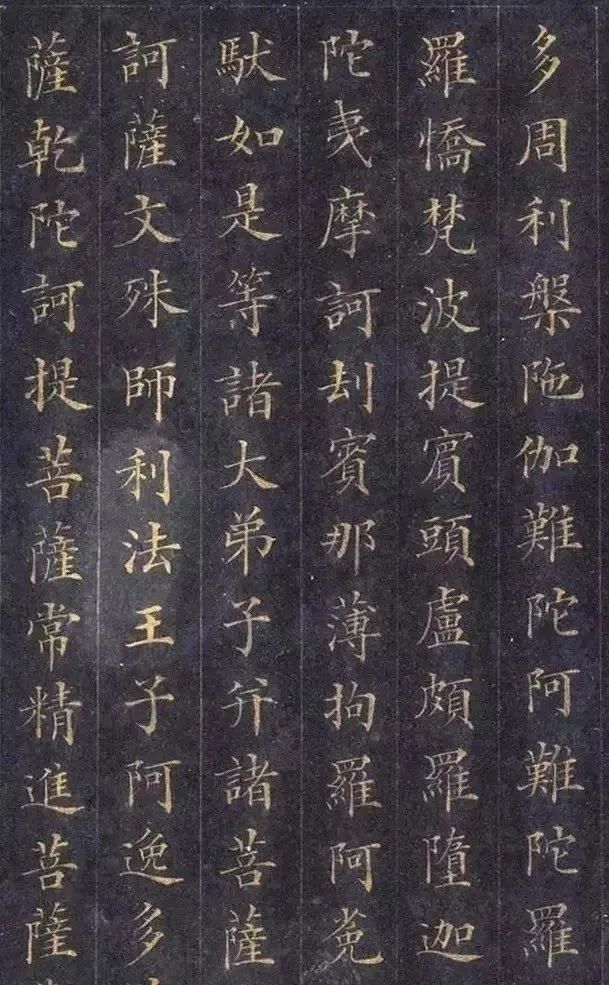 多周利槃陁伽難陀阿難陀羅
羅憍梵波提賓頭盧頗羅墮迦
陀夷摩訶刦賓那薄拘羅阿㝹
馱如是等諸大弟子并諸菩薩
訶薩文殊師利法王子阿逸多
薩乾陀訶提菩薩常精進菩薩